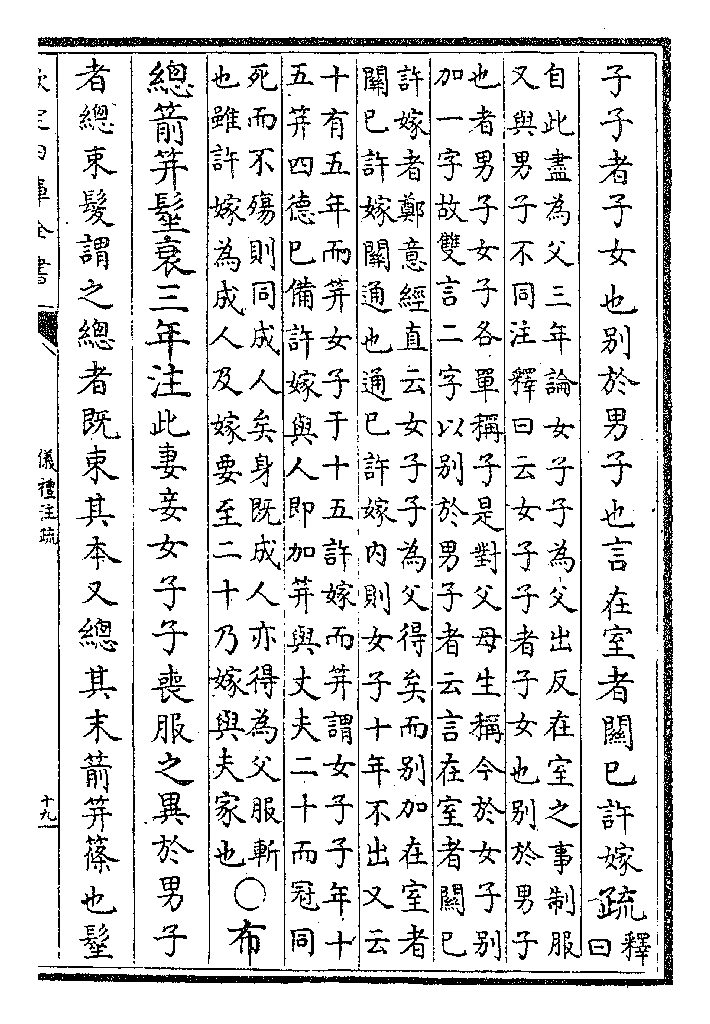 子子者子女也別於男子也言在室者關已許嫁疏釋曰
自此盡為父三年論女子子為父出反在室之事制服
又與男子不同注釋曰云女子子者子女也別於男子
也者男子女子各單稱子是對父母生稱今於女子別
加一字故雙言二字以別於男子者云言在室者關已
許嫁者鄭意經直云女子子為父得矣而別加在室者
關已許嫁關通也通已許嫁內則女子十年不出又云
十有五年而笄女子于十五許嫁而笄謂女子子年十
五笄四德已備許嫁與人即加笄與丈夫二十而冠同
死而不殤則同成人矣身既成人亦得為父服斬
也雖許嫁為成人及嫁要至二十乃嫁與夫家也
○布
總箭笄髽衰三年注此妻妾女子子喪服之異於男子
者總束髮謂之總者既束其本又總其末箭笄篠也髽
欽定四庫全書
儀禮注疏
十九